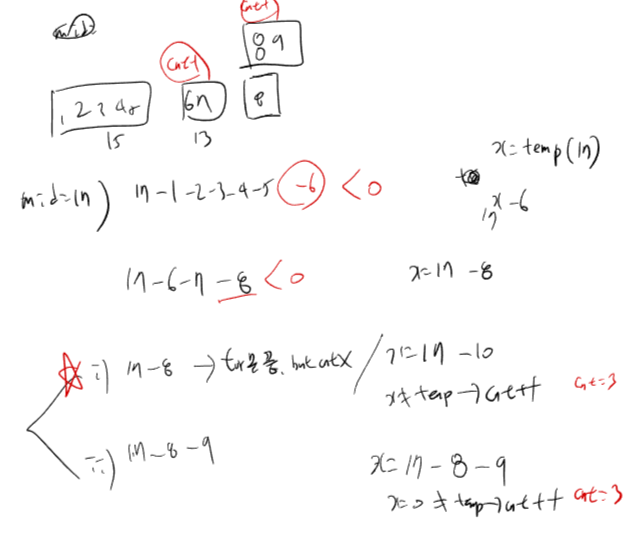 cnt+
8 9
cnt+
1 2 3 4 5
6 7
8
15
13
x = temp(17)
mid=17) 17-1-2-3-4-5 -6 < 0
x - 6
17
17-6-7-8 < 0
x = 17 - 8
i) 17-8 → for문 끝, but cnt X / x = 17 - 10
x ≠ temp → cnt++ cnt=3
ii) 17-8-9
x = 17 - 8 - 9
x = 0 ≠ temp → cnt++ cnt=3